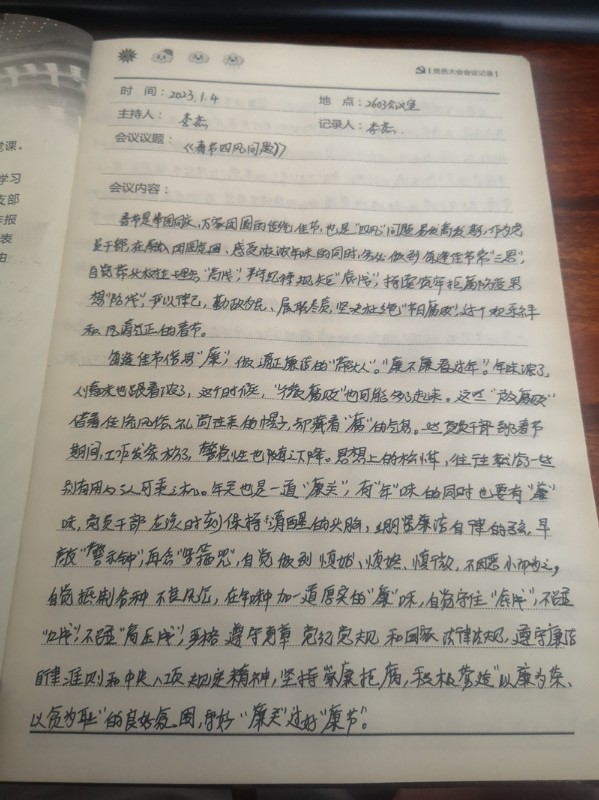 党课。
学习
支部
报
表
由
【党员大会会议记录】
时 间：2023.1.4 地 点：2603会议室
主持人：李杰 记录人：李杰
会议议题：《春节四风问题》
会议内容：
春节是中国万家团圆的传统佳节，也是"四风"问题易发高发期，作为党
员干部，在融入团圆氛围、感受浓浓年味的同时，务必做到每逢佳节常"三思"，
自觉带头树牢"高线"，严守纪律规矩"底线"，拒腐防变思
想"防线"，严以律己，勤政为民、履职尽责，坚决杜绝"节日腐败"，过个欢乐祥
和风清气正的春节。
每逢佳节倍思"廉"，做清正廉洁的"带头人"。"廉不廉看过年"。年味浓了，
人情味也跟着浓了，这个时候，"微腐败"也可能多了起来。这些"微腐败"
借着任性风俗、礼尚往来的幌子，却藏着"腐"的气息。一些党员干部到了春节
期间，工作发条松了，警觉性也随之下降。思想上的松懈，往往就给了一些
别有用心的人可乘之机。年关也是一道"廉关"，有"年"味的同时也要有"廉"
味，党员干部应该时刻保持清醒的头脑，绷紧廉洁自律的弦，早
敲"警示钟"，再念"紧箍咒"，自觉做到慎始、慎终、慎微，不因恶小而为之，
自觉抵制各种不良风气，在年味中加一道厚实的"廉"味，自觉守住"底线"，不碰
"红线"，不碰"高压线"，严格遵守党章党纪党规和国家法律法规，遵守廉洁
自律准则和中央八项规定精神，坚持崇廉拒腐，积极营造"以廉为荣、
以贪为耻"的良好氛围，守好"廉关"过好"廉节"。